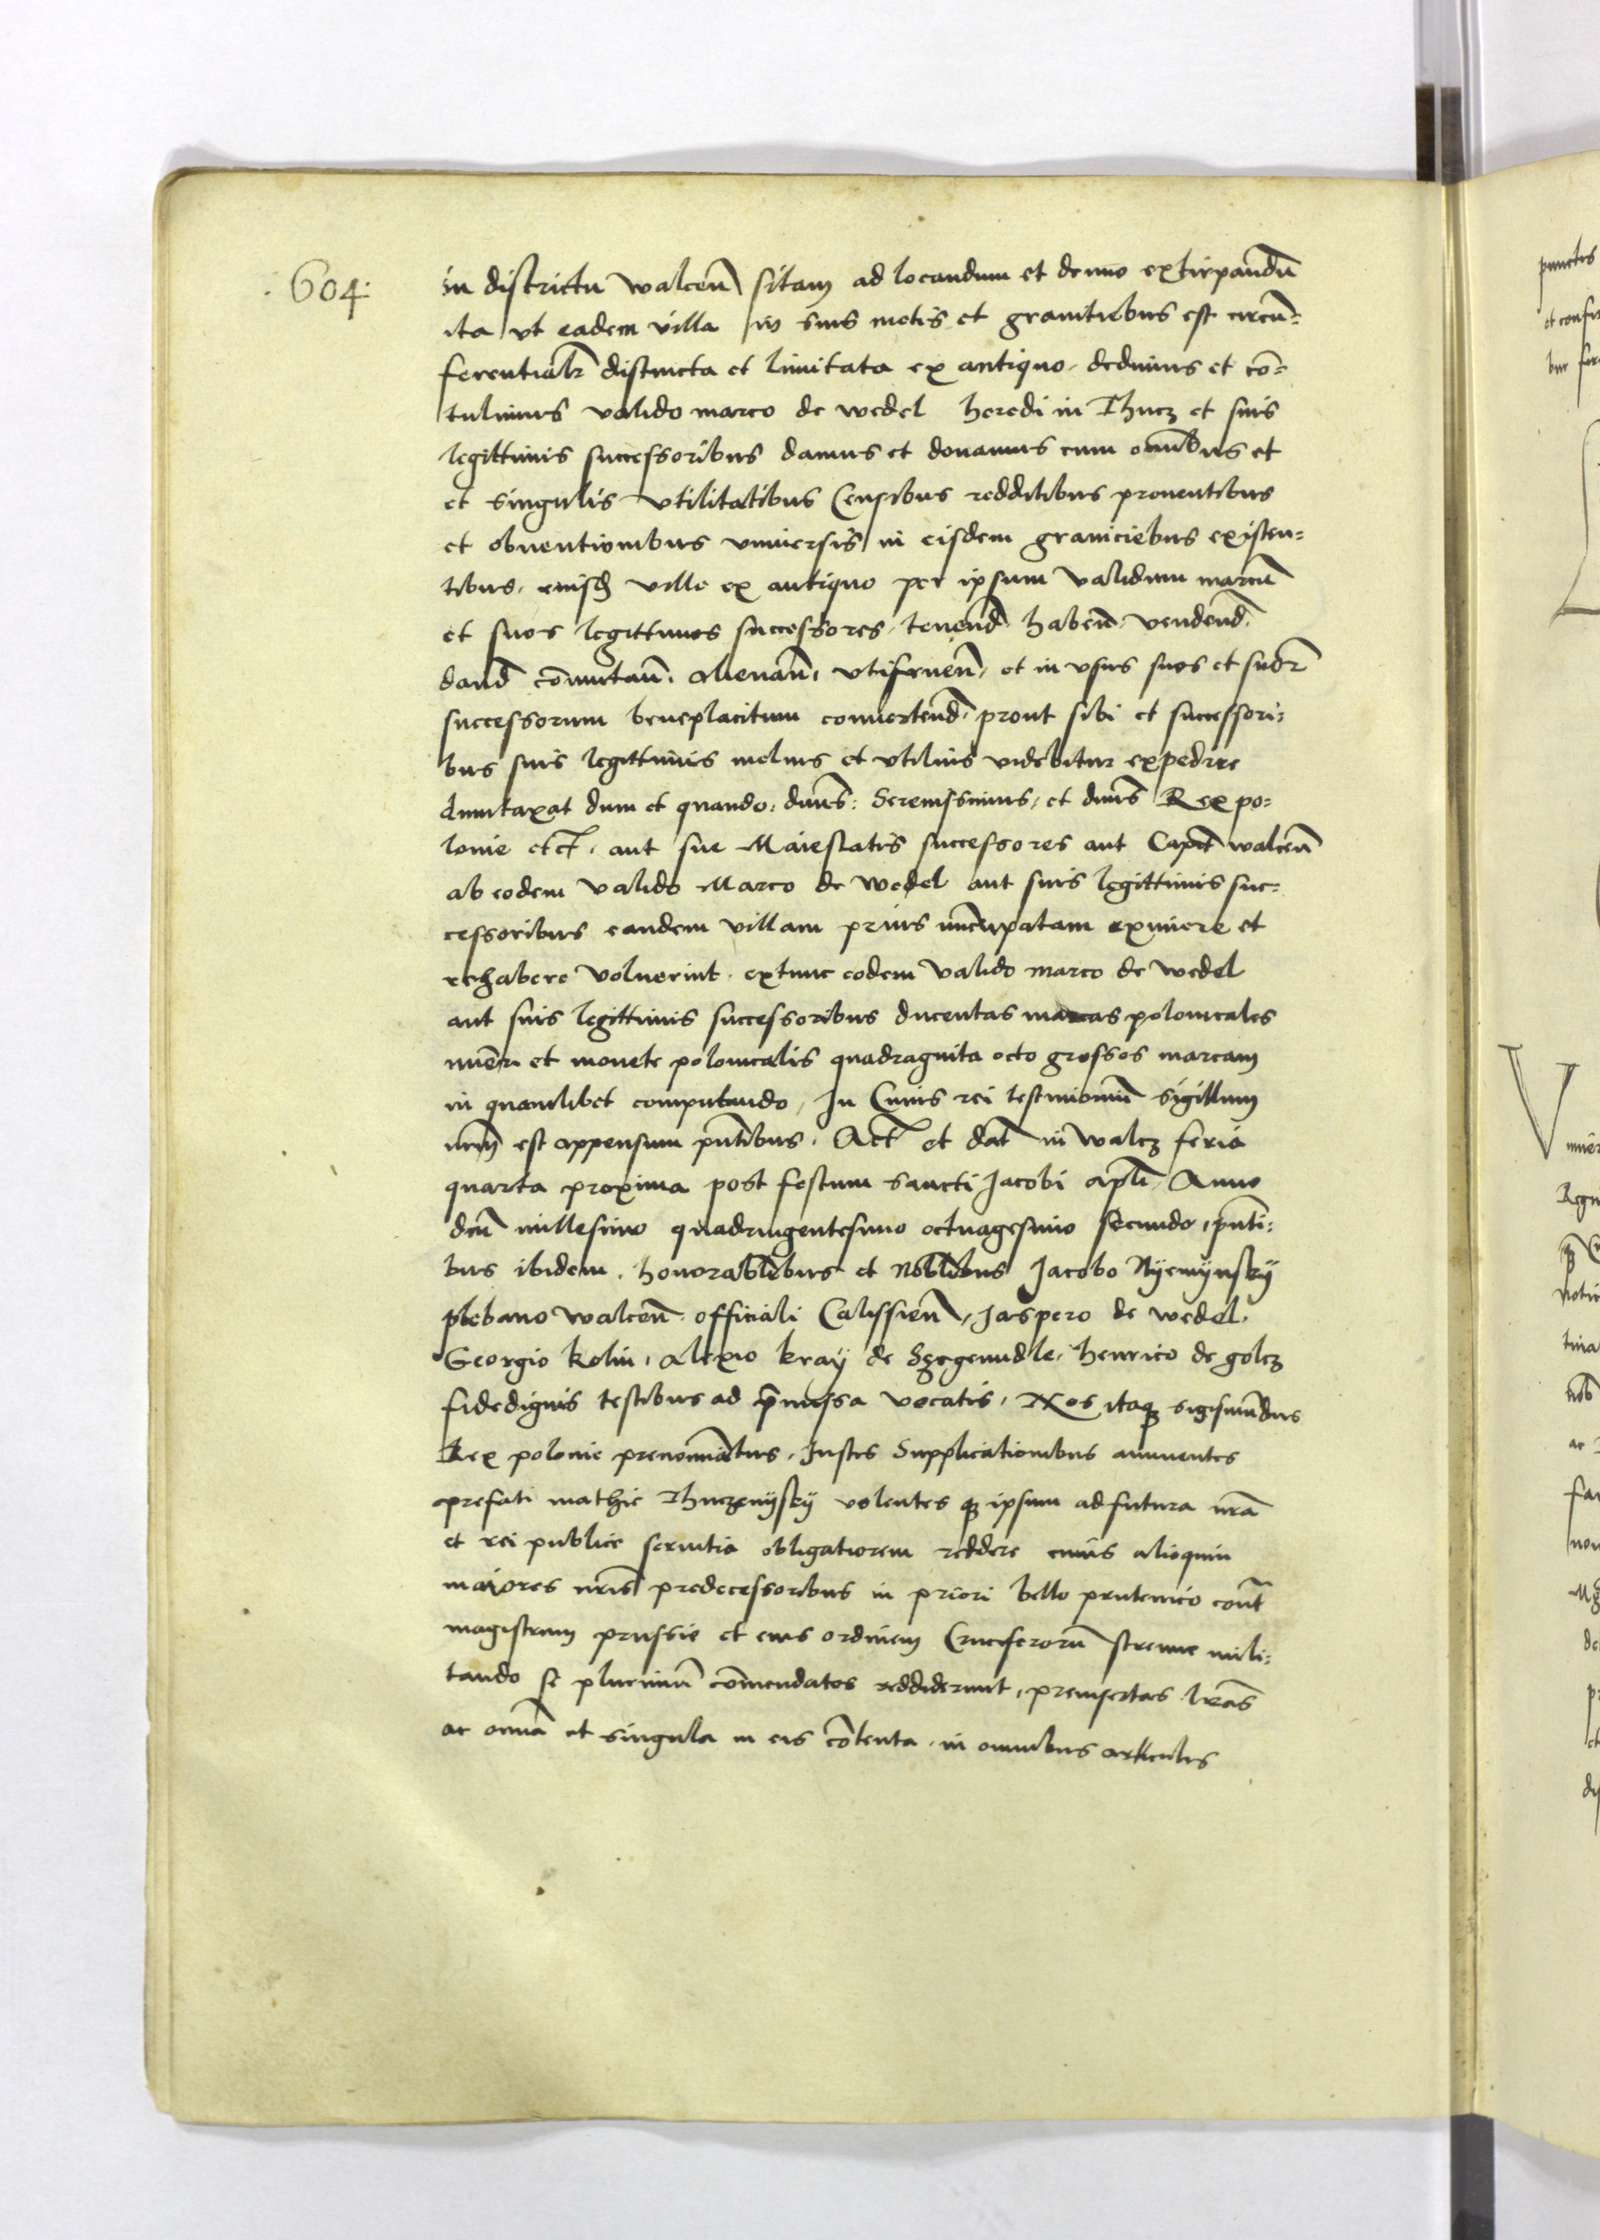 604
in districtu walceñ sitam ad locandum et denuo extirpandũ
ita vt eadem villa in suis metis et granitiebus est circũ=
ferentialr̃ distincta et limitata ex antiquo, dedimus et cõ=
tulimus valido marco de wedel heredi in Thucz et suis
legittimis successoribus damus et donamus cum omĩbus et
et singulis vtilitatibus Censibus redditibus prouentibus
et obuentionibus vniuersis in eisdem graniciebus existen=
tibus, eiusd ville ex antiquo per ipsum validum marcũ
et suos legittimos successores, tenend̃ habeñ, vendend̃,
dand̃ cõmutañ, alienañ, vtifrueñ, et in vsus suos et suor̃
successorum beneplacitum conuertend̃, prout sibi et successori=
bus suis legittimis melius et vtilius videbitur expedire
dumtaxat dum et quando, dñus: Serenissimus, et dñus Rex po=
lonie etc̃, aut sue Maiestatis successores aut Capit̃ walceñ
ab eodem valido Marco de wedel aut suis legittimis suc=
cessoribus eandem villam prius nũcupatam eximere et
rehabere voluerint, extunc eodem valido marco de wedel
aut suis legittimis successoribus ducentas marcas polonicales
nũeri et monete polonicalis quadraginta octo grossos marcam
in quamlibet computando, In Cuius rei testimoniũ sigillum
nr̃m est appensum pñtibus, Act̃ et dat̃ in walcz feria
quarta proxima post festum sancti Jacobi apl̃i, Anno
dñi millesimo quadringentesimo octuagesimo secundo, pñti=
bus ibidem, honorabl̃ibus et Nobl̃ibus Jacobo Nyemynsky
plebano walceñ, officiali Calissieñ, Jaspero de wedel,
Georgio kolin, Alexio kray de Szegenudle, Henrico de golcz
fidedignis testibus ad p̃missa vocatis, Nos itaq sigismũdus
Rex polonie prenomiãtus, Justis Supplicationibus annuentes
prefati mathie Thuczenysky volentes q ipsum ad futura nr̃a
et rei publice seruitia obligatiorem reddere cuius alioquin
maiores nr̃is predecessoribus in priori bello prutenico cont̃
magistrum prussie et eius ordinem Cruciferorũ strenue mili=
tando se plurimũ cõmendatos reddiderunt, preinsertas lr̃as
ac omĩa et singula in eis cõtenta, in omnibus articulis